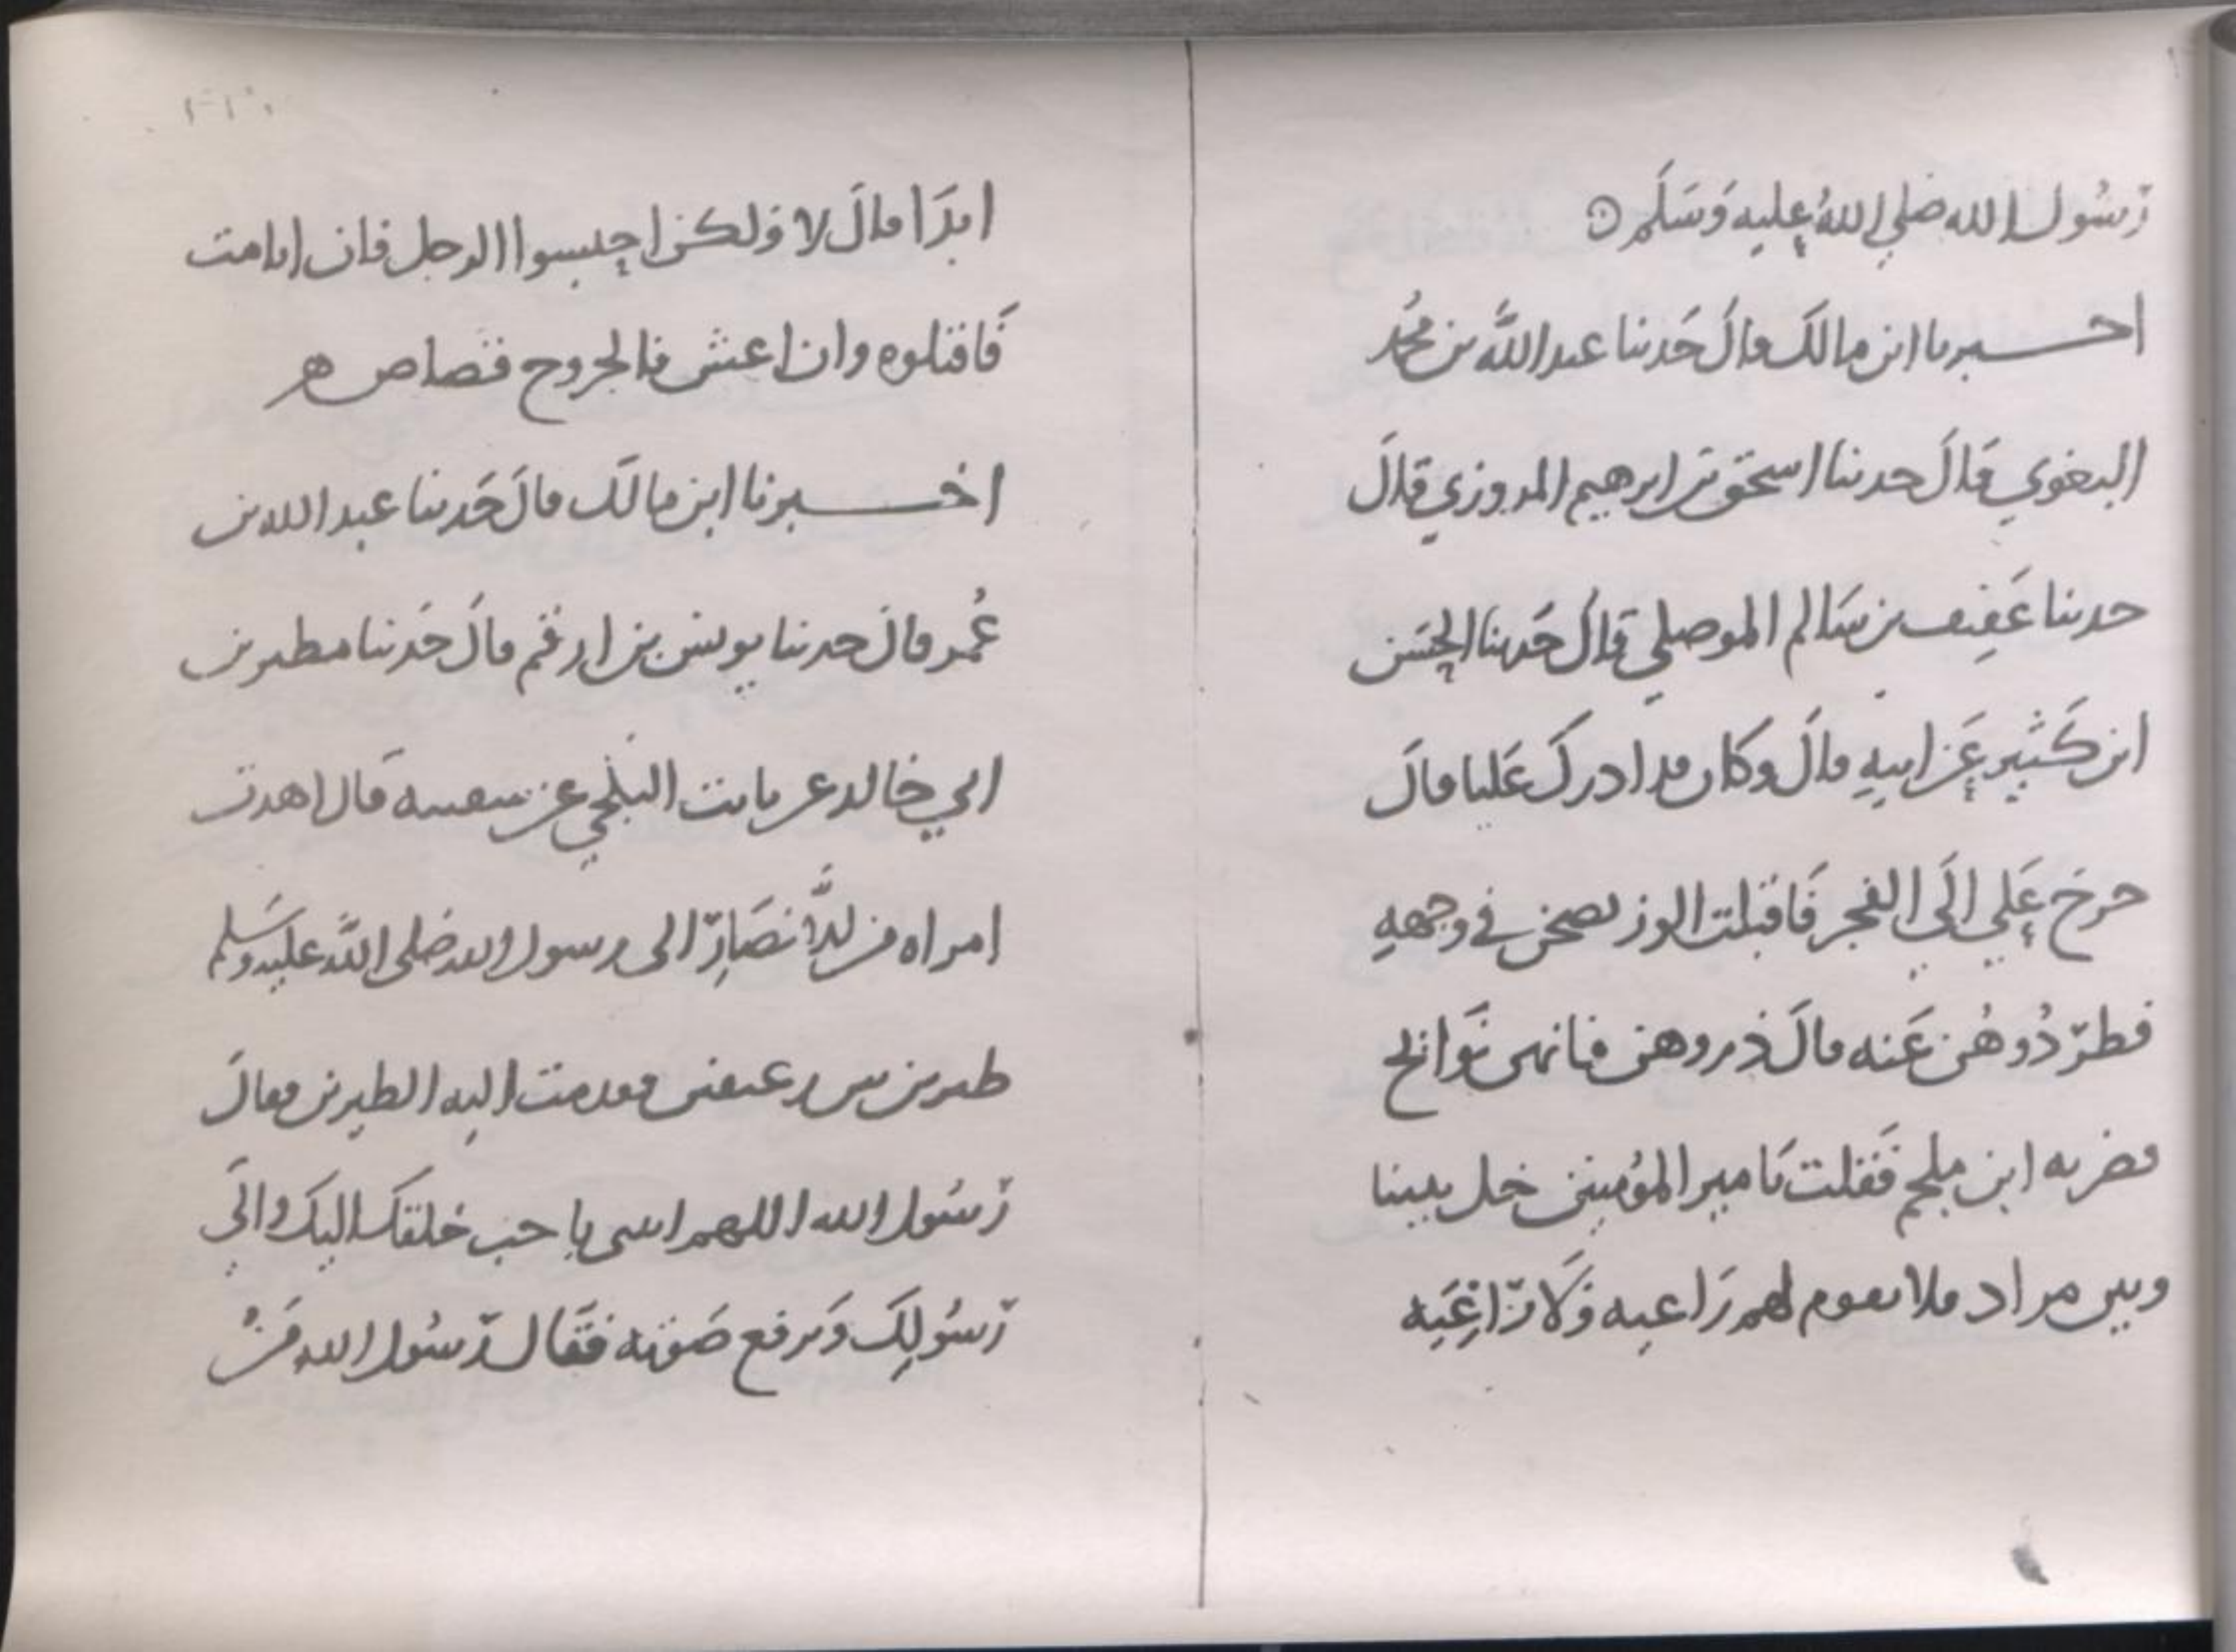 رسول الله صلي الله عليه وسلم
اخبرنا ابن مالك قال حدثنا عبد الله بن محمد
البغوي قال حدثنا اسحق بن ابرهيم المروزي قال
حدثنا عفيف بن سالم الموصلي قال حدثنا الحسن
ابن كثير عن ابيه قال وكان قد ادرك عليا قال
خرج علي الي الفجر فاقبلت الوز يصحن في وجهه
فطردوهن عنه قال ذروهن فانهن نوائح
فضربه ابن ملجم فقلت يامير المؤمنين خل بيننا
وبين مراد فلا تقوم لهم راعيه ولا راغيه
ابدا قال لا ولكن احبسوا الرجل فان انا مت
فاقتلوه وان اعش فالجروح قصاص
اخبرنا ابن مالك قال حدثنا عبد الله بن
عمر قال حدثنا يونس بن ارقم قال حدثنا مطير بن
ابي خالد عن ثابت البلخي عن سفينه قال اهدت
امراه من الانصار الى رسول الله صلى الله عليه وسلم
طيرين بين رغيفين فقدمت اليه الطيرين فقال
رسول الله اللهم ائتني باحب خلقك اليك والي
رسولك ورفع صوته فقال رسول الله من